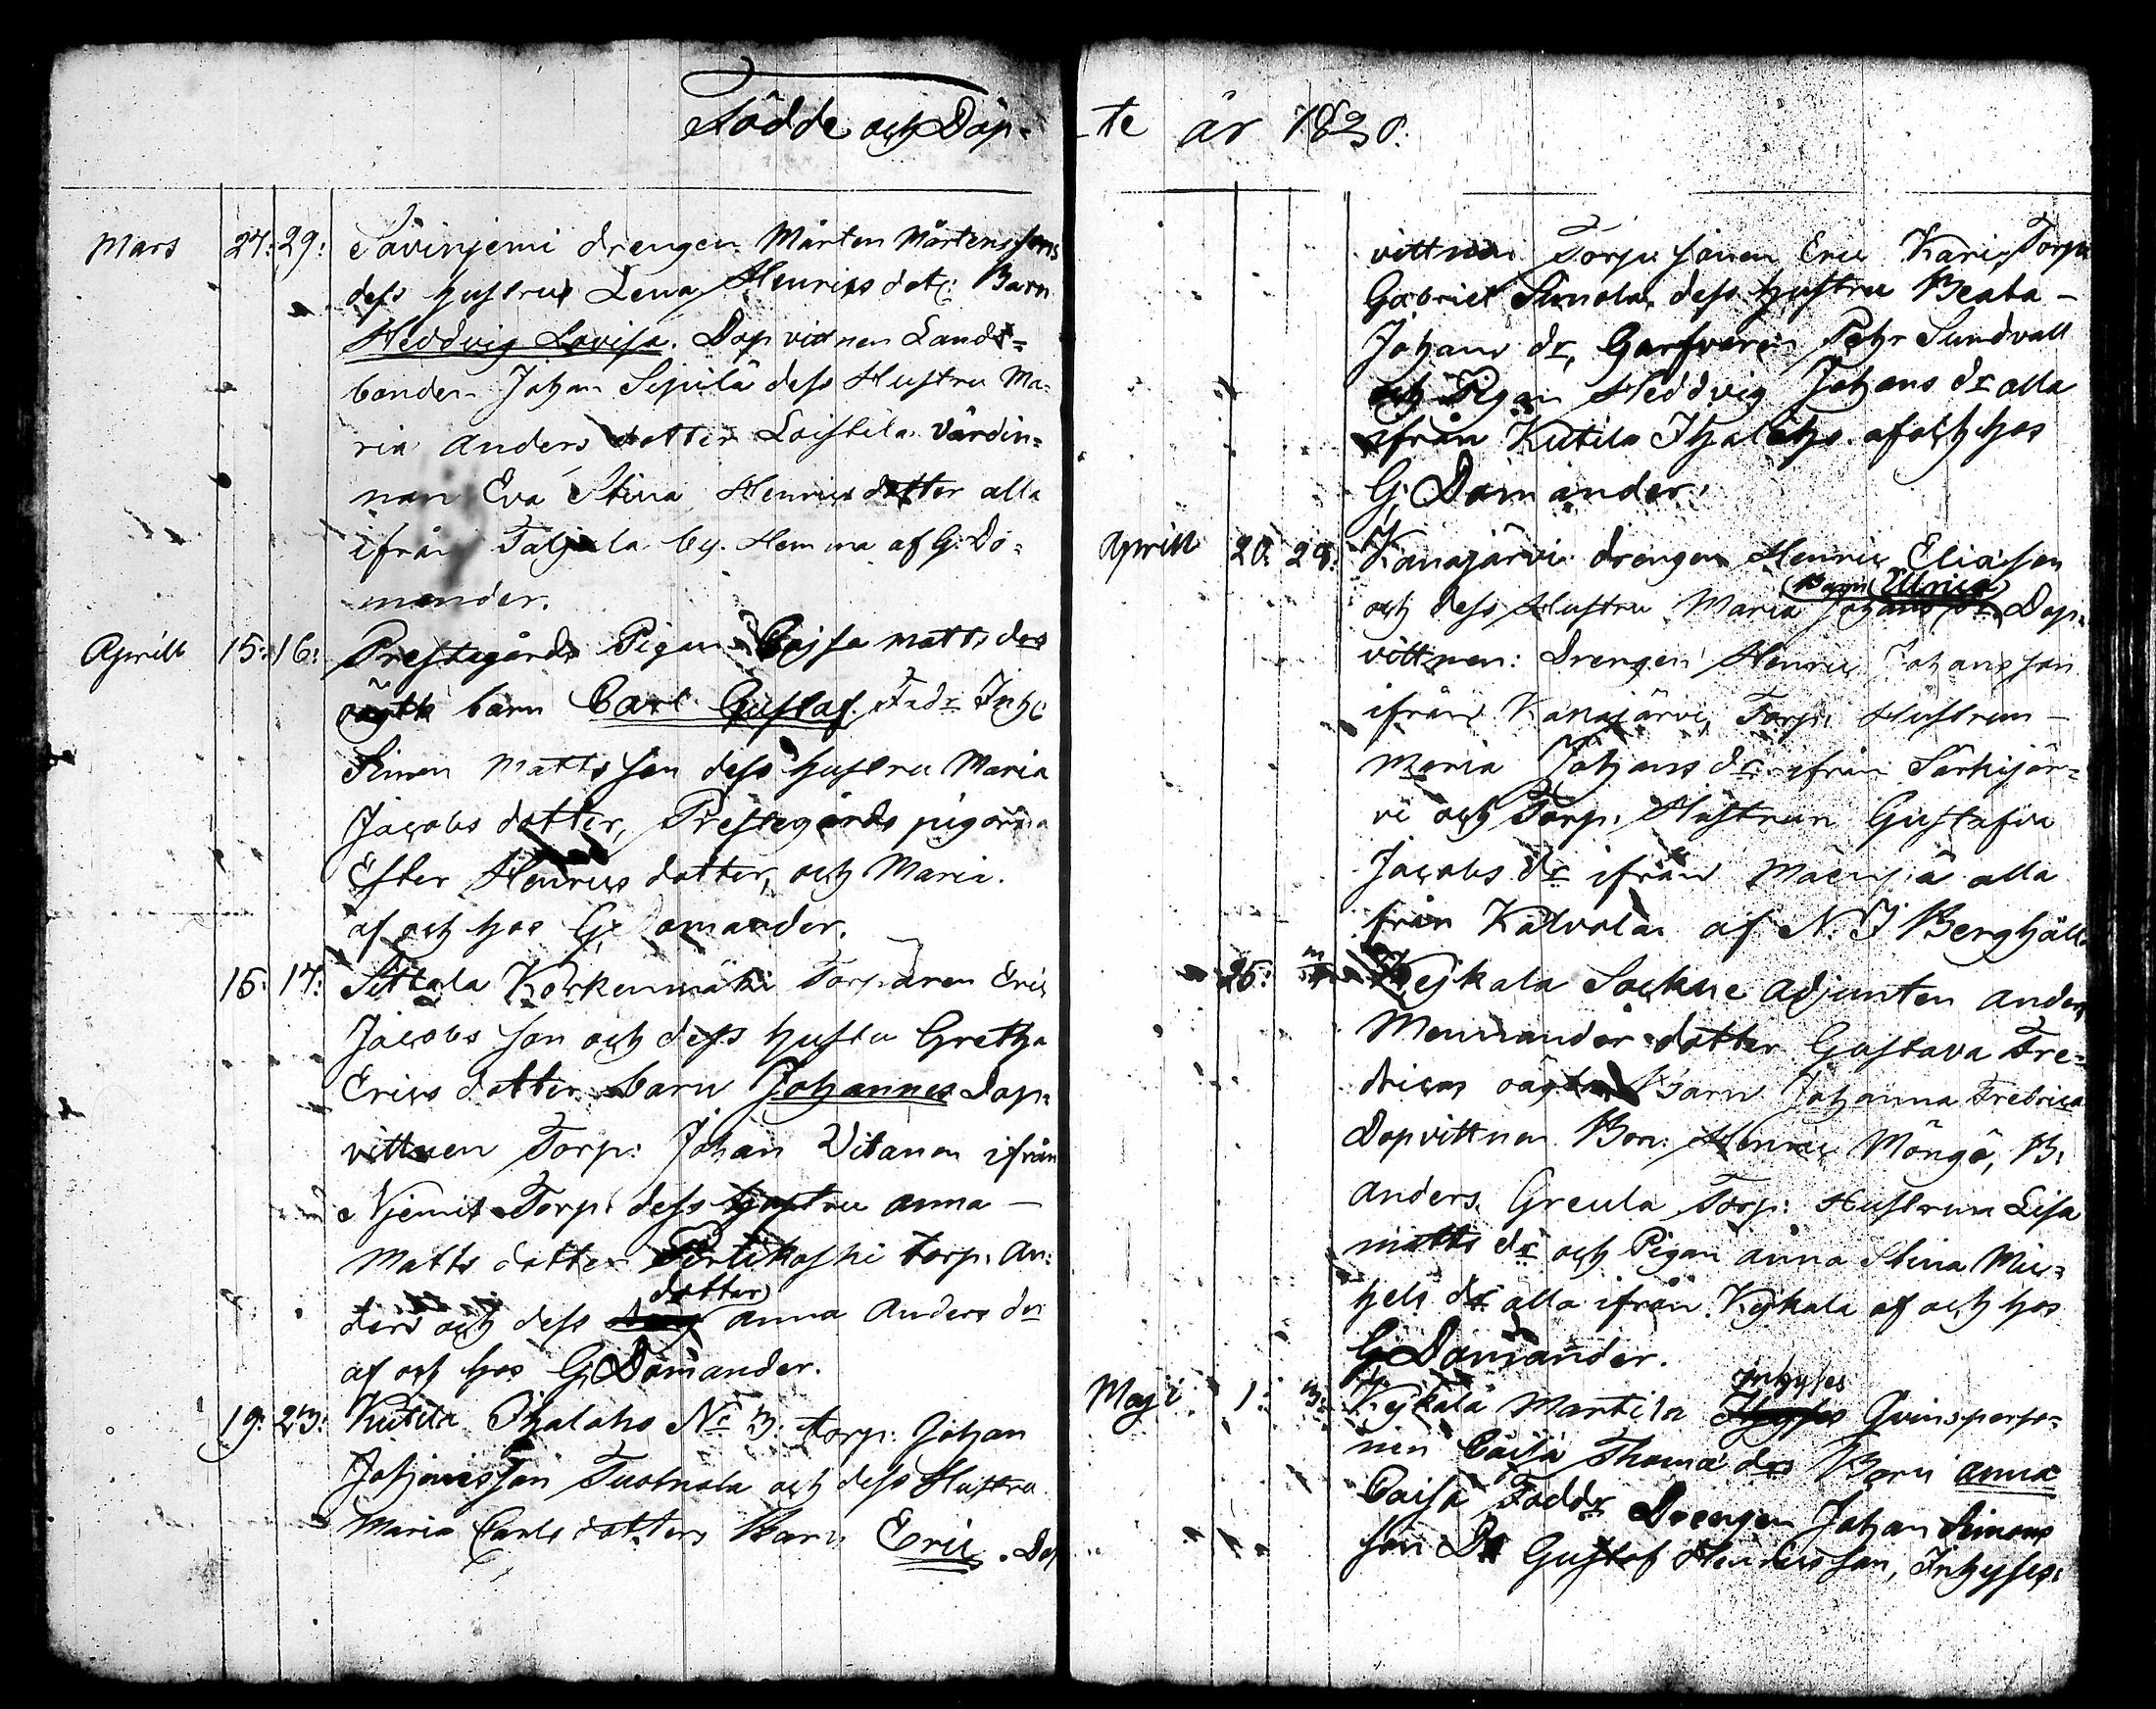 Födde och Döp-
Mars 27: 29: Savinjemi drengen Mårten Mårtenssons
dess hustrus Lena Henrics dotr: Barn
Heddvig Lovisa. Dopvittnen Lands-
bonden Johan Sipilä dess Hustru Ma-
ria Anders dotter Loistila Värdin-
nan Eva Stina Henrics dotter alla
ifrån Taljala by. Hemma af G: Do-
mander.
Aprill 15: 16: Prestegårds Pigan Cajsa Matts drs
oägta barn Carl Gustaf. Fadr Inh:
Simon Mattsson dess hustru Maria
Jacobs dotter, Prestegårds pigorna
Ester Henrics dotter, och Maria.
af och hos G: Domander.
15: 17: Sittala Korkenmäki Torparen Eric
Jacobs son och dess hustru Gretha
Erics dotter barn Johannes Dop-
vittnen Torp: Johan Vitanen ifrån
Njemit Torp: dess hustru Anna
Matts dotter Pertikoski torp: An-
ders och dess dotter Anna Anders dr
af och hos G: Domander.
19: 23: Kutila Ihalahs No 3: torp: Johan
Johansson Tuomala och dess Hustru
Maria Carls dotters Barn Eric. Dop
-te år 1830.
vittnen Torpu sonen Eric Kari, Torpu
Gabriel Simola, dess hustru Beata
Johans dr, Garfvaren Pehr Sundvall
och Pigan Heddvig Johans dr alla
ifrån Kutila Ihalahs. af och hos
G: Domander.
Aprill 20: 28: Kanajärvi drengen Henric Eliasson
Barn Ulrica
och dess Hustru Maria Johans dr. Dop-
vittnen: Drengen Henric Johansson
ifrån Kanajärvi, Torp: Hustrun
Maria Johans dr ifrån Särkijär-
vi och Torp: Hustrun Gustafva
Jacobs dr ifrån alla
från Kalvola af N. J Berghäll
25: Kejkala Sockne Adjunten Anders
Mennander dotter Gustava Fre-
dricas oägta Barn Johanna Fredrica
Dopvittnen Bon: Henric Möngö, B:
Anders Greula Torp: Hustrun Lisa
Matts dr och Pigan Anna Stina Mic-
hels dr alla ifrån Kejkala af och hos
G: Domander.
Maji 1: 3: Kejkala Martila inhyses Qvinsperso-
nen Caisa Thomæ drs Barn Anna
Caisa Faddr Drengen Johan Simons
son Dr Gustaf Henricsson, Inhyses: